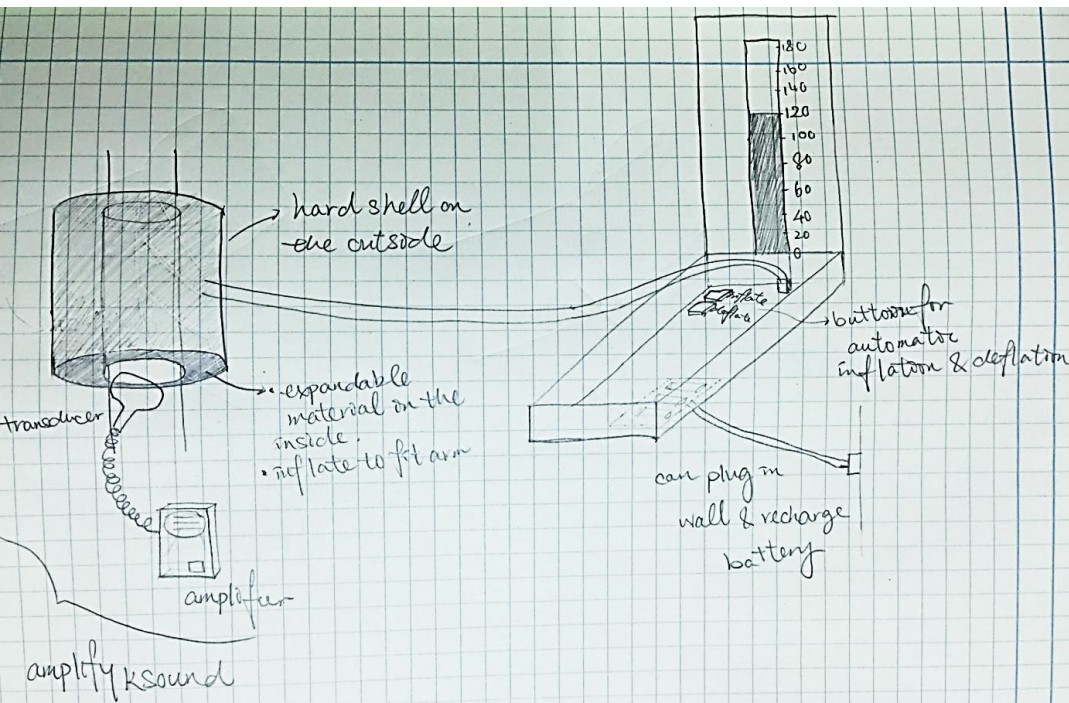 180
160
140
120
100
80
60
40
20
0
hard shell on
the outside
inflate
deflate
→ button for
automatic
inflation & deflation
transducer
• expandable
material in the
inside.
• inflate to fit arm
can plug in
wall & recharge
battery
amplifier
amplify ksound